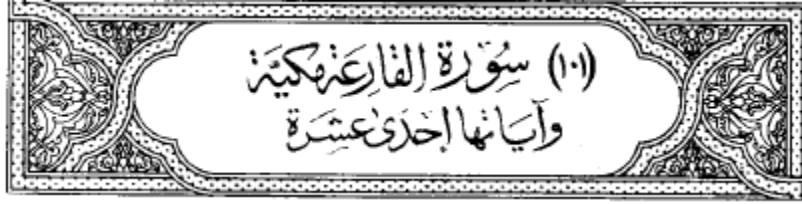 (١٠١) سُوۡرَة القَارِعَة مَكيَّة
وَآيَاتُهَا إحۡدَىٰ عَشَرَة